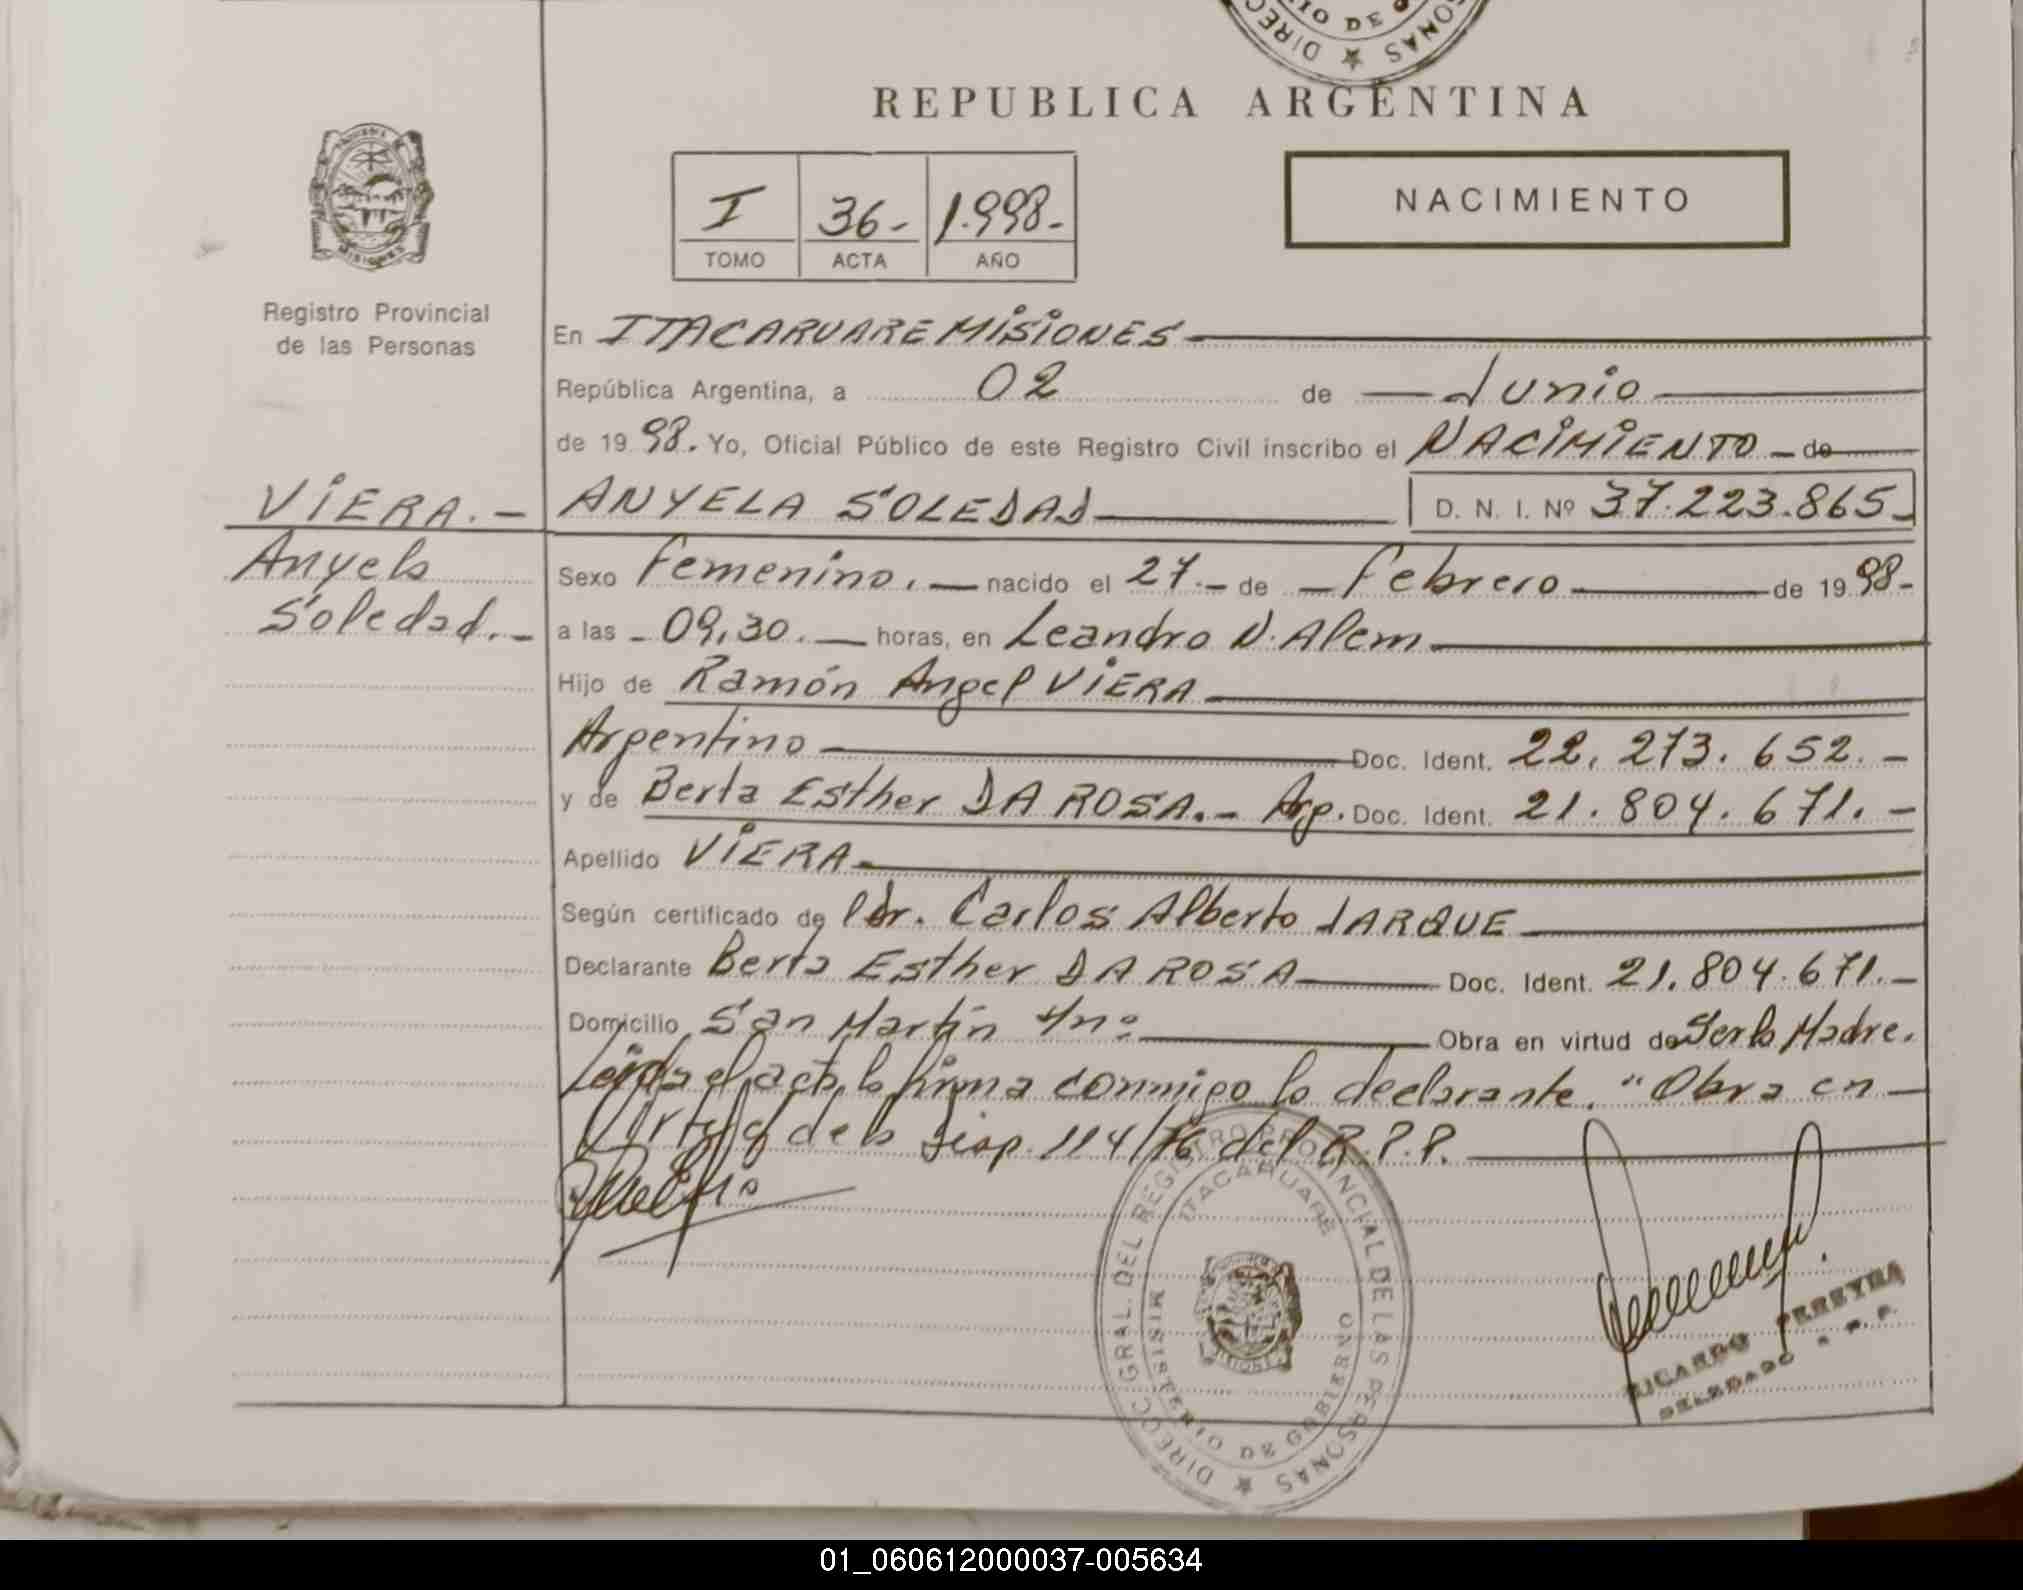 REPUBLICA ARGENTINA
NACIMIENTO
I 36- 1.998-
TOMO ACTA AÑO
Registro Provincial
de las Personas
En ITACARUARE MISIONES
República Argentina, a 02 de Junio
de 1998. Yo, Oficial Público de este Registro Civil inscribo el NACIMIENTO - de
VIERA.- ANYELA SOLEDAD D. N. I. Nº 37.223.865-
Anyela
Soledad.-
Sexo Femenino.- nacido el 27.- de - Febrero de 1998-
a las - 09,30.- horas, en Leandro N. Alem
Hijo de Ramón Angel VIERA
Argentino Doc. Ident. 22.273.652.-
y de Berta Esther DA ROSA.- Arg. Doc. Ident. 21.804.671.-
Apellido VIERA
Según certificado de Dr. Carlos Alberto JARQUE
Declarante Berta Esther DA ROSA Doc. Ident. 21.804.671.-
Domicilio San Martín s/nº Obra en virtud de Ser la Madre.
Leída el acta la firma conmigo la declarante. "Obra en
Virtud de la Disp. 114/76 del R.P.P.
DIRECC. GRAL. DEL REGISTRO PROVINCIAL DE LAS PERSONAS
ITACARUARE
MINISTERIO DE GOBIERNO
RICARDO PEREYRA
DELEGADO R. P. P.
01_060612000037-005634